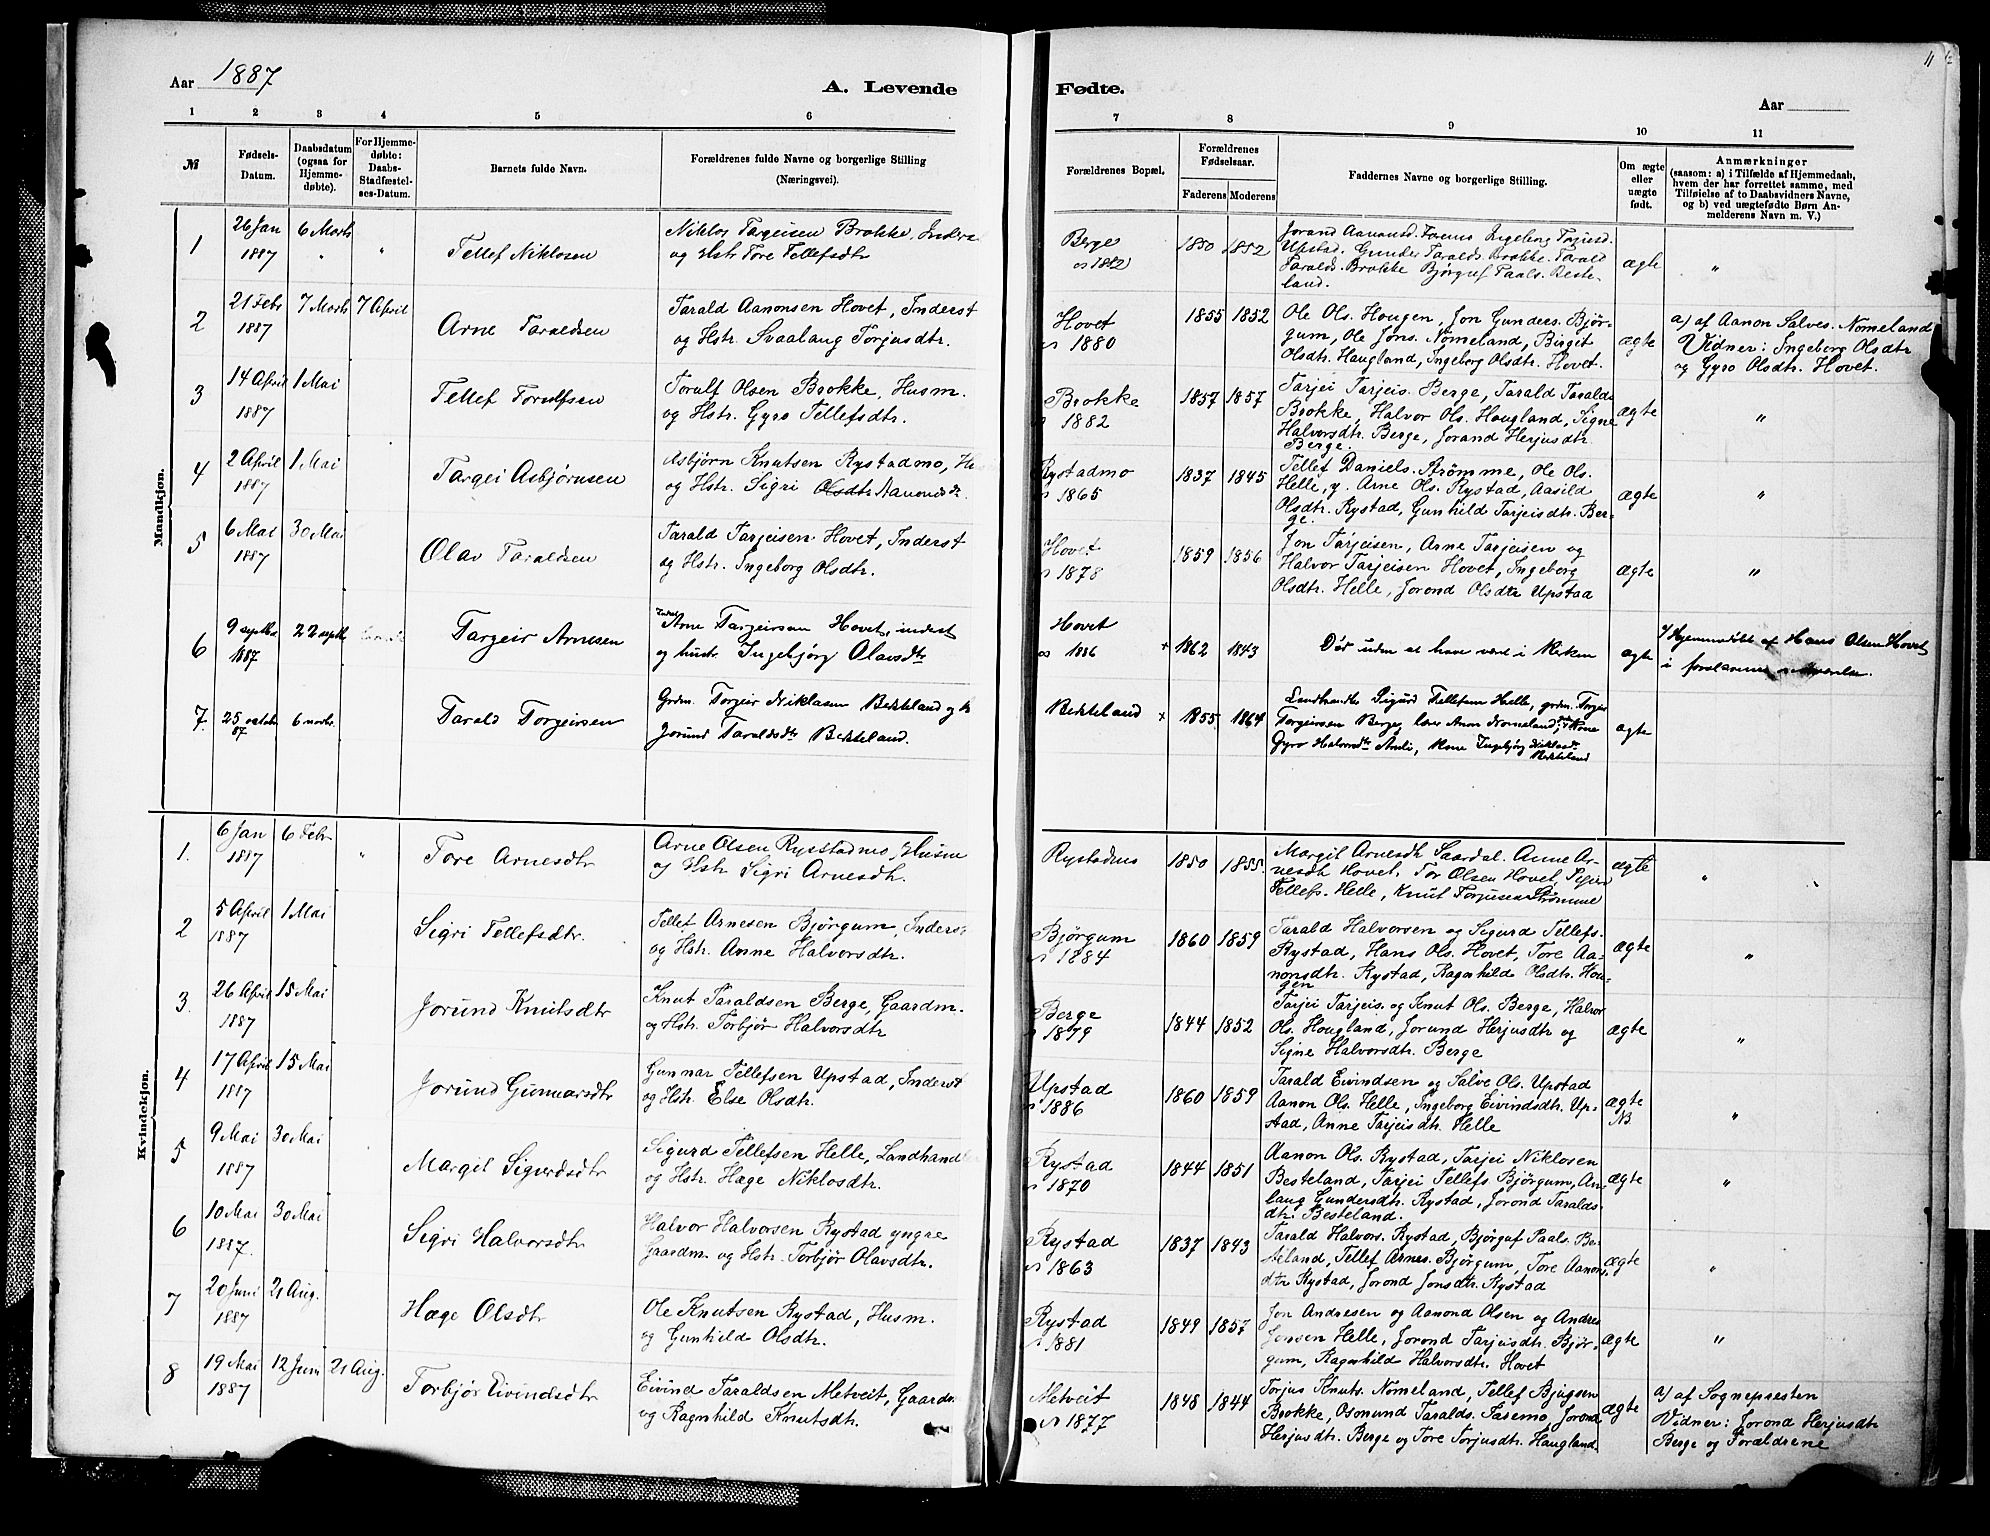 11
Aar 1887
A. Levende
Fødte.
Aar
1 2 3 4 5 6 7 8 9 10 11
№
Fødsels-
Datum.
Daabsdatum
(ogsaa for
Hjemme-
døbte).
For Hjemme-
døbte:
Daabs-
Stadfæstel-
ses-Datum.
Barnets fulde Navn.
Forældrenes fulde Navne og borgerlige Stilling
(Næringsvei).
Forældrenes Bopæl.
Forældrenes
Fødselsaar.
Faderens Moderens
Faddernes Navne og borgerlige Stilling.
Om ægte
eller
uægte
født.
Anmærkninger
(saasom: a) i Tilfælde af Hjemmedaab,
hvem der har forrettet samme, med
Tilføielse af to Daabsvidners Navne,
og b) ved uægtefødte Børn An-
melderens Navn m. V.)
Mandkjøn.
1
26 Jan
1887
6 Marts
"
"
Tellef Niklosen
Niklos Targeisen Brokke,
og Hstr Tore Tellefsdtr
Berge
1850 1852
Jorand Aanonsd. Ingeborg Torjusd.
Upstad. Gunder Taralds. Brokke. Tarald
Taralds. Brokke Bjørguf Paals. Beste-
land.
ægte
"
2
21 Febr
1887
7 Marts
7 April
Arne Taraldsen
Tarald Aanonsen Hovet, Inderst
og Hstr. Svaalaug Torjusdtr.
Hovet
1880
1855 1852
Ole Ols. Hougen, Jon Gunders. Bjør-
gum, Ole Jons. Nomeland, Birgit
Olsdtr. Haugland, Ingeborg Olsdtr. Hovet.
ægte
a) af Aanon Salves. Nomeland
Vidner: Ingeborg Olsdtr
og Gyro Olsdtr. Hovet.
3
14 April
1887
1 Mai
Tellef Torulfsen
Torulf Olsen Brokke, Husm.
og Hstr. Gyro Tellefsdtr.
Brokke
1882
1857 1857
Tarjei Tarjeis. Berge, Tarald Taralds
Brokke, Halvor Ols. Hougland, Signe
Halvorsdtr. Berge, Jorand Herjusdtr.
Berge.
ægte
"
4
2 April
1887
1 Mai
Targei Asbjørnsen
Asbjørn Knutsen Rystadmo,
og Hstr. Sigri Olsdtr Aanonsdtr.
Rystadmo
1865
1837 1845
Tellef Daniels. Strømme, Ole Ols.
Helle, y. Arne Ols. Rystad, Aasild
Olsdtr. Rystad, Gunhild Tarjeisdtr. Ber-
ge.
ægte
"
5
6 Mai
1887
30 Mai
Olav Taraldsen
Tarald Tarjeisen Hovet, Inderst
og Hstr. Ingeborg Olsdtr.
Hovet
1878
1859 1856
Jon Tarjeisen, Arne Tarjeisen og
Halvor Tarjeisen Hovet, Ingeborg
Olsdtr. Helle, Jorond Olsdtr Upstad
ægte
"
6
9 septbr
1887
22 septbr
Targeir Arnesen
Arne Targeirsen Hovet, inderst
og hustr. Ingebjørg Olavsdtr
Hovet
1886
+ 1862 1843
Dør uden at have været i Kirken
ægte
Hjemmedøbt af Hans Olsen Hovet
i
7.
25 octobr
87
6 novbr.
Tarald Torgeirsen
Grdm. Torgeir Niklasen Bekteland og h
Jorund Taraldsdtr Bekteland.
Bekteland
+ 1855 1864
Landhandler Sigurd Tellefsen Helle, grdm. Torgeir
Torgeirsen Berge, Nomeland, Kone
Gyro Halvorsdtr, Kone Ingebjørg Niklasdtr
Bekteland
ægte
Kvindekjøn.
1.
6 Jan
1887
6 Febr
"
Tore Arnesdtr
Arne Olsen Rysstadmo, Husm
og Hstr Sigri Arnesdtr.
Rystadmo
1850 1855.
Margit Arnesdtr Saardal. Anne Ar-
nesdtr Hovet, Tor Olsen Hovet,
Tellefs. Helle, Knut Torjusen Strømme
ægte
"
2
5 April
1887
1 Mai
Sigri Tellefsdtr.
Tellef Arnesen Bjørgum, Inderst
og Hstr. Anne Halvorsdtr.
Bjørgum
1884
1860 1859
Tarald Halvorsen og Sigurd Tellefs.
Rystad, Hans Ols. Hovet, Tore Aa-
nonsdtr. Rystad, Ragnhild Olsdtr. Hou-
gen
ægte
"
3.
26 April
1887
15 Mai
Jorund Knutsdtr
Knut Taraldsen Berge, Gaardm.
og Hstr. Torbjør Halvorsdtr
Berge
1879
1844 1852
Tarjei Tarjeis. og Knut Ols. Berge, Halvor
Ols. Hougland, Jorund Herjusdtr og
Signe Halvorsdtr. Berge
ægte
"
4
17 April
1887
15 Mai
Jorund Gunnarsdtr
Gunnar Tellefsen Upstad, Inderst
og Hstr. Else Olsdtr.
Upstad
1886
1860 1859
Tarald Eivindsen og Salve Ols. Upstad
Aanon Ols. Helle, Ingeborg Eivindsdtr. Up-
stad, Anne Tarjeisdtr. Helle
ægte
N
"
5
9 Mai
1887
30 Mai
Margit Sigurdsdtr
Sigurd Tellefsen Helle, Landhandl
og Hstr. Hæge Niklosdtr.
Rystad
1870
1844 1851
Aanon Ols. Rystad, Tarjei Niklosen
Besteland, Tarjei Tellefs. Bjørgum, An-
laug Gundersdtr. Rystad, Jorond Taralds-
dtr. Besteland.
ægte
"
6
10 Mai
1887.
30 Mai
Sigri Halvorsdtr
Halvor Halvorsen Rystad yngre
Gaardm. og Hstr. Torbjør Olavsdtr.
Rystad
1863
1837 1843
Tarald Halvors. Rystad, Bjørguf Paals. Be-
steland, Tellef Arnes. Bjørgum, Tore Aanons-
dtr Rystad, Jorond Jonsdtr. Rystad
ægte
"
7
20 Juni
1887
21 Aug.
Hæge Olsdtr
Ole Knutsen Rystad, Husm.
og Gunhild Olsdtr.
Rystad
1881
1849 1857
Jon Andresen og Aanond Olsen og Andres
Jonsen Helle, Jorond Tarjeisdtr. Bjør-
gum, Ragnhild Halvorsdtr. Hovet
ægte
"
8
19 Mai
1887
12 Juni
21 Aug.
Torbjør Eivindsdtr
Eivind Taraldsen Metveit, Gaardm.
og Ragnhild Knutsdtr.
Metveit
1877
1848 1844
Torjus Knuts. Nomeland, Tellef Bjugsen
Brokke, Osmund Taralds. Jasemo, Jorond
Herjusdtr. Berge og Tore Torjusdtr. Haugland.
ægte
a) af Sognepresten
Vidner: Jorond Herjusdtr
Berge og Forældrene